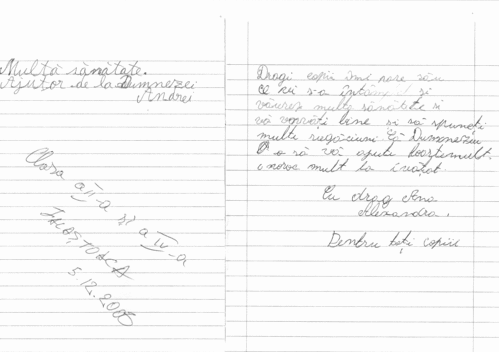 Multă sănătate.
Ajutor de la Dumnezei
Andrei
Clasa a II-a și a IV-a
5.12.2005
Dragi copii îmi pare rău
ce cu s-a întâm și
vă urez multe sănătate si
vă vopiați bine si să spuneți
multe rugăciuni Că Dumnezeu
o să vă ajute foarte mult.
noroc mult la învățat
Cu drag Ana
Alexandra.
Pentru toți copiii